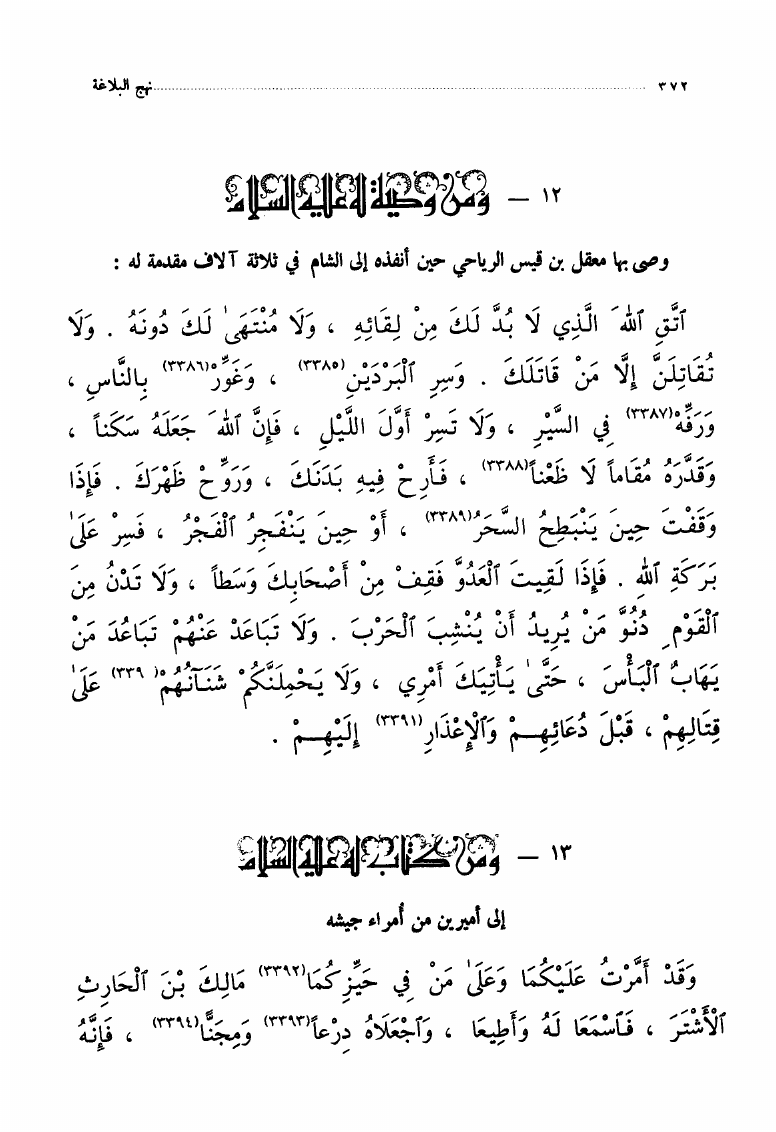 ٣٧٢ ........................................ نهج البلاغة
١٢ – وَمن وصية له عليه السلام
وصى بها معقل بن قيس الرياحي حين أنفذه إلى الشام في ثلاثة آلاف مقدمة له :
ٱتَّقِ ٱللهَ الَّذِي لَا بُدَّ لَكَ مِنْ لِقَائِهِ ، وَلَا مُنْتَهَىٰ لَكَ دُونَهُ . وَلَا
تُقَاتِلَنَّ إِلَّا مَنْ قَاتَلَكَ . وَسِرِ ٱلْبَرْدَيْنِ(٣٣٨٥) ، وَغَوِّرْ(٣٣٨٦) بِالنَّاسِ ،
وَرَفِّهْ(٣٣٨٧) فِي السَّيْرِ ، وَلَا تَسِرْ أَوَّلَ اللَّيْلِ ، فَإِنَّ ٱللهَ جَعَلَهُ سَكَناً ،
وَقَدَّرَهُ مُقَاماً لَا ظَعْناً(٣٣٨٨) ، فَأَرِحْ فِيهِ بَدَنَكَ ، وَرَوِّحْ ظَهْرَكَ . فَإِذَا
وَقَفْتَ حِينَ يَنْبَطِحُ السَّحَرُ(٣٣٨٩) ، أَوْ حِينَ يَنْفَجِرُ ٱلْفَجْرُ ، فَسِرْ عَلَىٰ
بَرَكَةِ ٱللهِ . فَإِذَا لَقِيتَ ٱلْعَدُوَّ فَقِفْ مِنْ أَصْحَابِكَ وَسَطاً ، وَلَا تَدْنُ مِنَ
ٱلْقَوْمِ دُنُوَّ مَنْ يُرِيدُ أَنْ يُنْشِبَ ٱلْحَرْبَ . وَلَا تَبَاعَدْ عَنْهُمْ تَبَاعُدَ مَنْ
يَهَابُ ٱلْبَأْسَ ، حَتَّىٰ يَأْتِيَكَ أَمْرِي ، وَلَا يَحْمِلَنَّكُمْ شَنَآنُهُمْ(٣٣٩٠) عَلَىٰ
قِتَالِهِمْ ، قَبْلَ دُعَائِهِمْ وَٱلْإِعْذَارِ(٣٣٩١) إِلَيْهِمْ .
١٣ – وَمن كتاب له عليه السلام
إلى أميرين من أمراء جيشه
وَقَدْ أَمَّرْتُ عَلَيْكُمَا وَعَلَىٰ مَنْ فِي حَيِّزِكُمَا(٣٣٩٢) مَالِكَ بْنَ ٱلْحَارِثِ
ٱلْأَشْتَرَ ، فَٱسْمَعَا لَهُ وَأَطِيعَا ، وَٱجْعَلَاهُ دِرْعاً(٣٣٩٣) وَمِجَنًّا(٣٣٩٤) ، فَإِنَّهُ